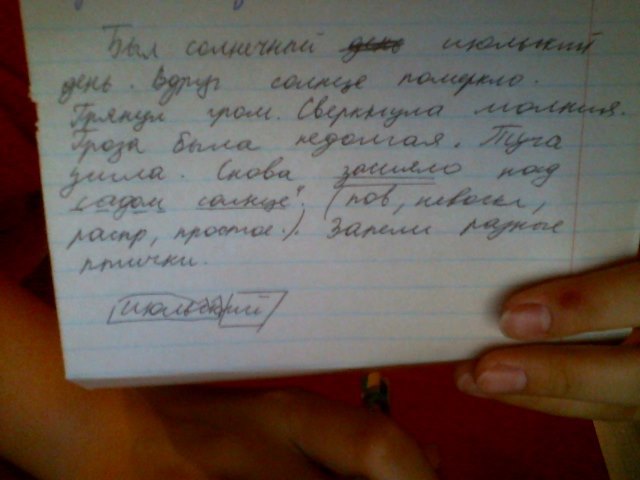 Был солнечный день июльский
день. Вдруг солнце померкло.
Грянул гром. Сверкнула молния.
Гроза была недолгая. Туча
ушла. Снова засияло над
садом солнце". (пов, невоскл,
распр, простое.). Запели разные
птички.
июльский